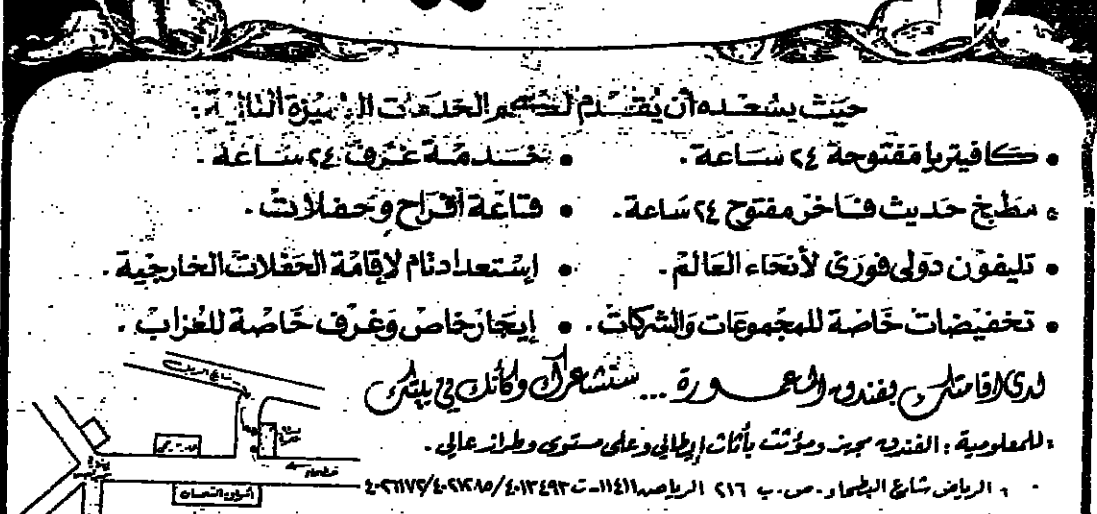 حيث يسعده أن يقدم لكم الخدمات المميزة التالية:
• كافيتريا مفتوحة ٢٤ ساعة. • خدمة غرف ٢٤ ساعة.
• مطبخ حديث فاخر مفتوح ٢٤ ساعة. • قاعة أفراح وحفلات.
• تليفون دولي فوري لأنحاء العالم. • إستعداد تام لإقامة الحفلات الخارجية.
• تخفيضات خاصة للمجموعات والشركات. • إيجار خاص وغرف خاصة للعزاب.
لدى إقامتك بفندق المعمورة ... ستشعر أنك وكأنك في بيتك
للمعلومية: الفندق مجهز ومؤثث بأثاث إيطالي وعلى مستوى وطراز عالي.
الرياض شارع البطحاء - ص. ب ٢١٦ الرياض ١١٤١١ - ت ٤٠١٣٤٩٣